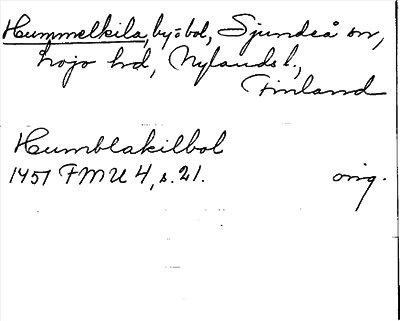 Hummelkila, by o bol, Sjundeå sn,
Lojo hd, Nylands l.,
Finland
Humblakilbol
1451 FMU 4, s. 21. orig.